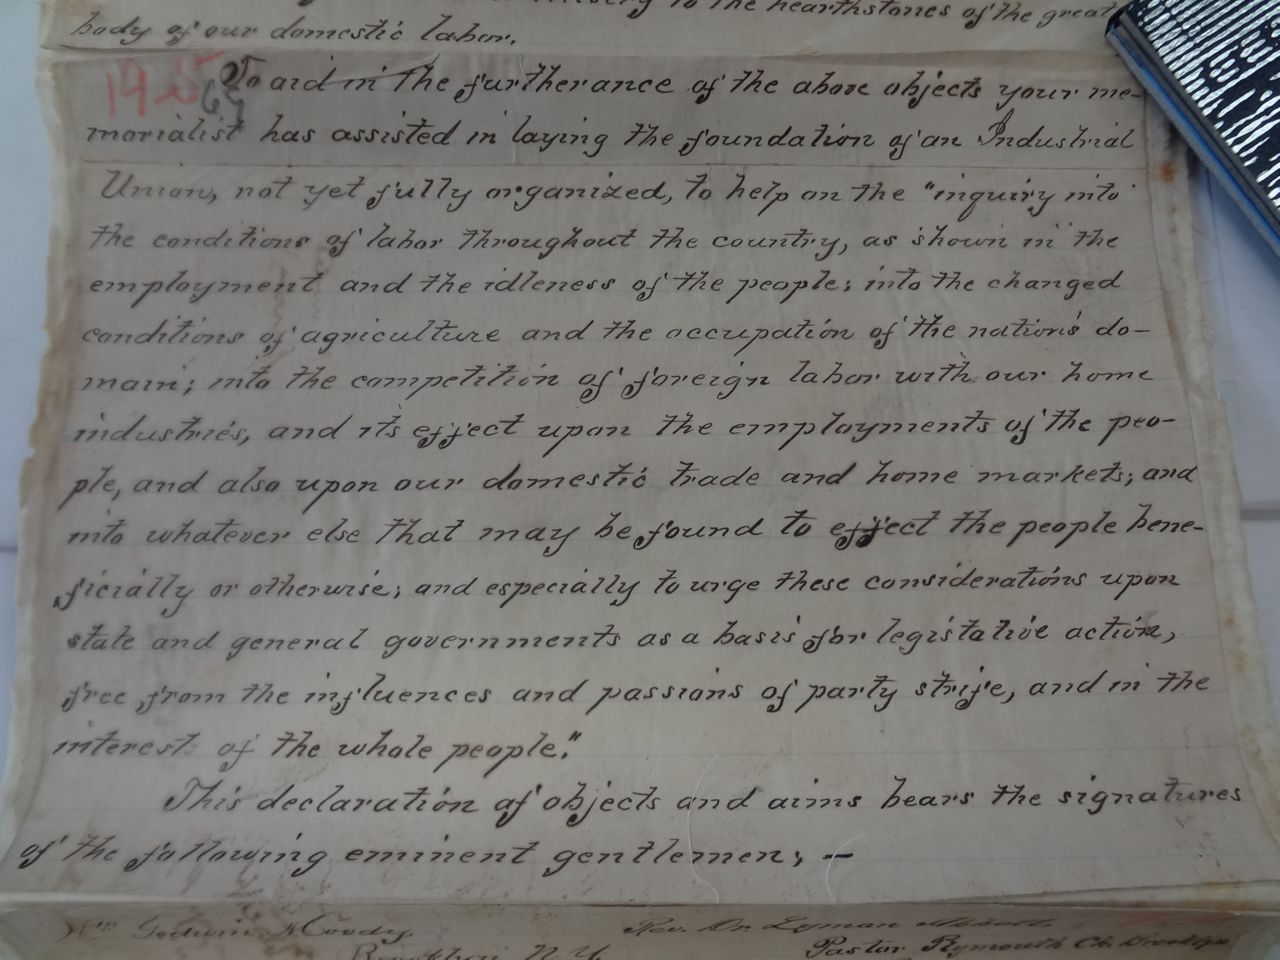 to the hearthstones of the great
body of our domestic labor.
To aid in the furtherance of the above objects your me-
morialist has assisted in laying the foundation of an Industrial
Union, not yet fully organized, to help on the "inquiry into
the conditions of labor throughout the country, as shown in the
employment and the idleness of the people; into the changed
conditions of agriculture and the occupation of the nation's do-
main; into the competition of foreign labor with our home
industries, and its effect upon the employments of the peo-
ple, and also upon our domestic trade and home markets; and
into whatever else that may be found to effect the people bene-
ficially or otherwise; and especially to urge these considerations upon
state and general governments as a basis for legistative action,
free from the influences and passions of party strife, and in the
interest of the whole people."
This declaration of objects and aims bears the signatures
of the following eminent gentlemen; —
Wm Godwin Moody, Rev. Dr. Lyman Abbott,
Brooklyn N.Y. Pastor Plymouth Ch. Brooklyn